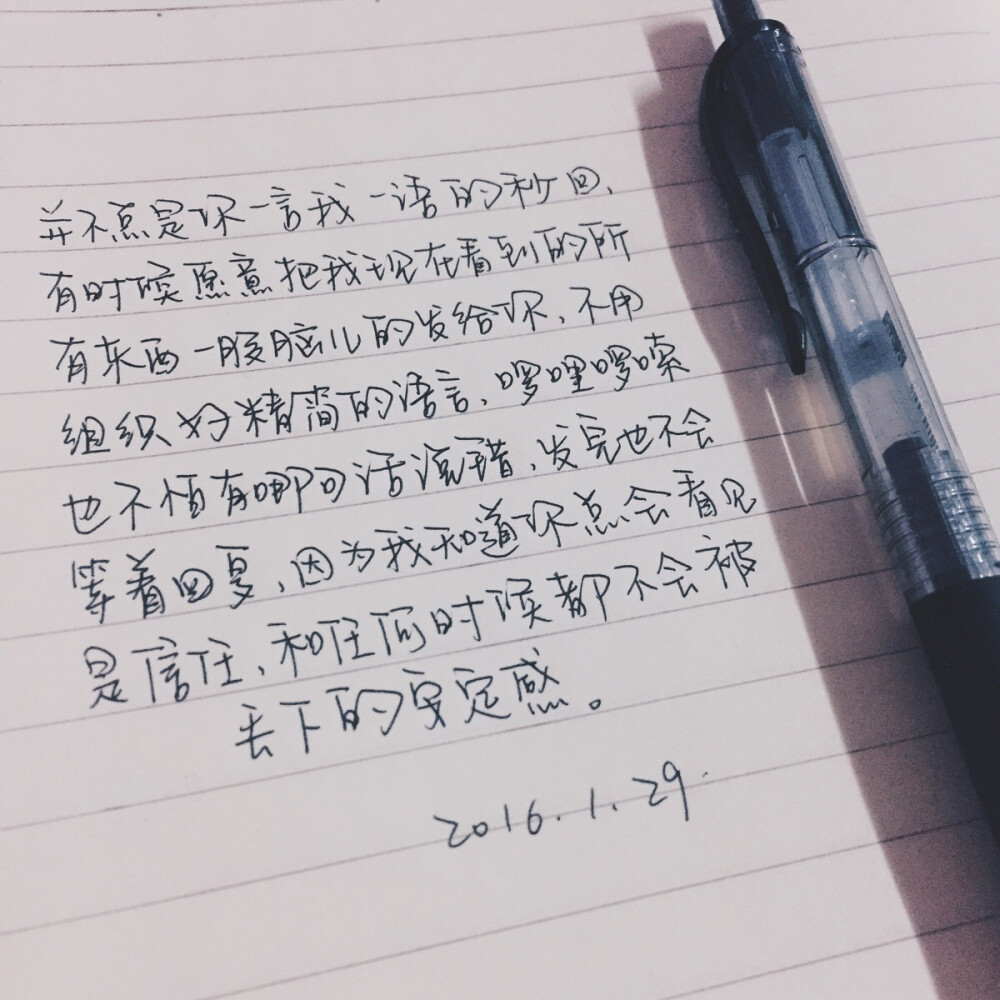 并不点是你一言我一语的秒回、
有时候愿意把我现在看到的所
有东西一股脑儿的发给你、不用
组织好精简的语言、啰哩啰嗦
也不怕有哪句话说错、发完也不会
等着回复、因为我知道你点会看见
是信任、和任何时候都不会被
丢下的安定感。
2016.1.29.